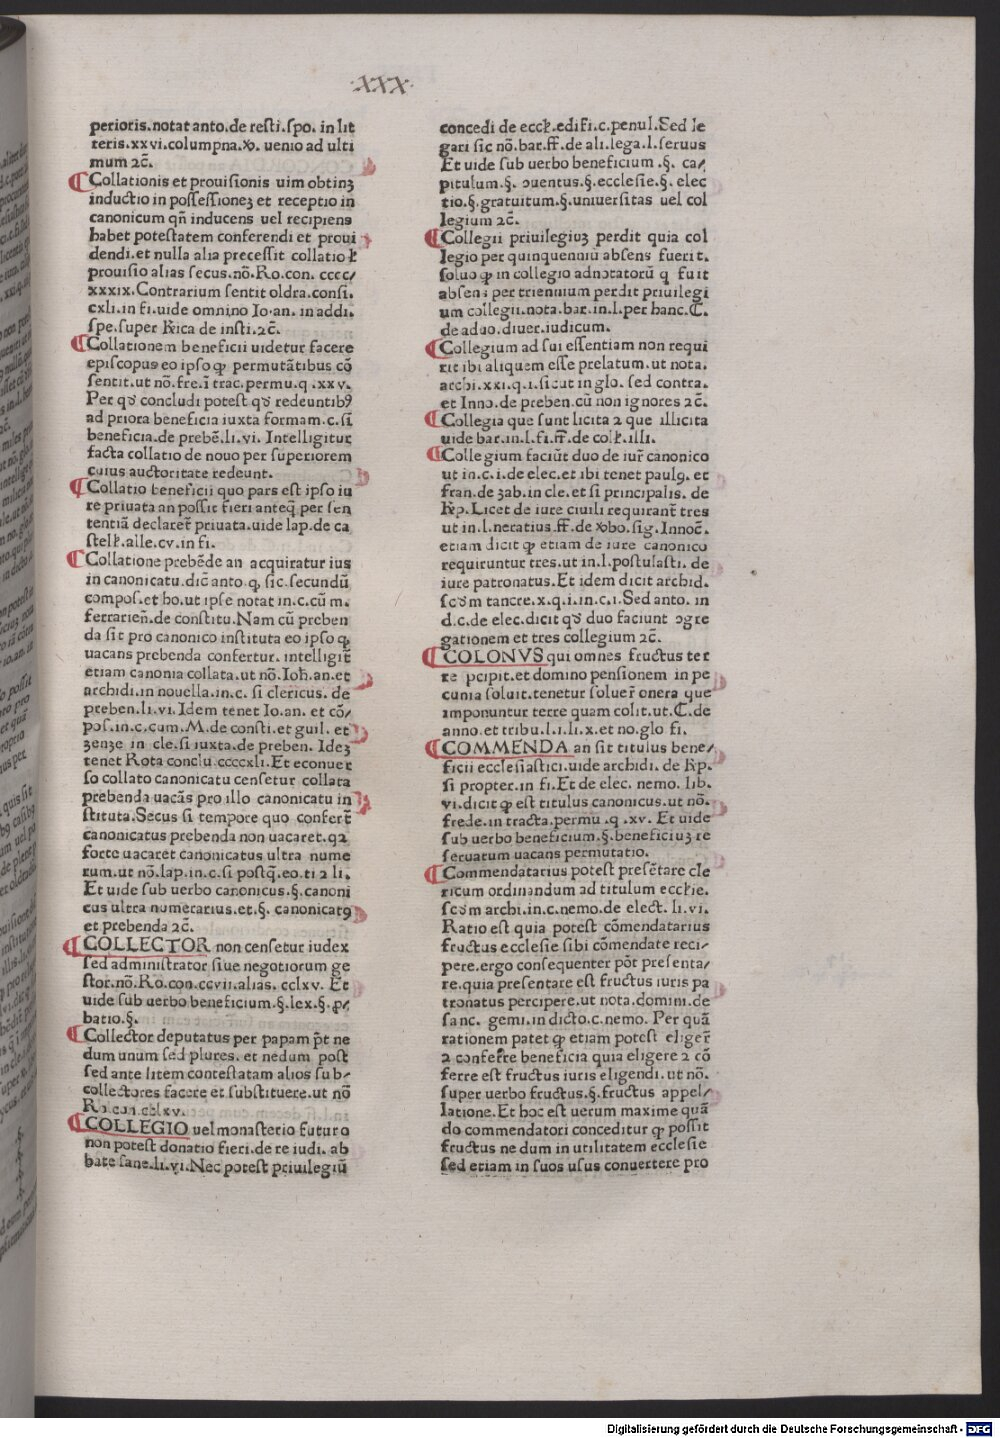 ·XXX·
perioris.notat anto.de resti.spo. in lit
teris.xxvi.columpna.ꝟ. uenio ad ulti
mum ⁊c̃.
Collationis et prouisionis uim obtinꝫ
inductio in possessioneꝫ et receptio in
canonicum qñ inducens uel recipiens
habet potestatem conferendi et proui
dendi.et nulla alia precessit collatio ł
prouisio alias secus.nõ.Ro.con. cccc/
xxxix. Contrarium sentit oldra.consi.
cxli.in fi.uide omnino Io.an. in addi.
spe.super Rica de insti.⁊c̃.
Collationem beneficii uidetur facere
episcopus eo ipso ꝙ permutãtibus cõ
sentit.ut nõ.fre.ĩ trac.permu.q.xxv.
Per qđ concludi potest qđ redeuntibꝰ
ad priora beneficia iuxta formam.c.sĩ
beneficia.de prebẽ.li.vi. Intelligitur
facta collatio de nouo per superiorem
cuius auctoritate redeunt.
Collatio beneficii quo pars est ipso iu
re priuata an possit fieri anteq̃ per sen
tentiã declaret̃ priuata.uide lap.de ca
stelł.alle.cv.in fi.
Collatione prebẽde an acquiratur ius
in canonicatu.dic̃ anto.ꝙ sic.secundũ
compos.et bo.ut ipse notat in.c.cũ m.
ferrarieñ.de constitu.Nam cũ preben
da sit pro canonico instituta eo ipso ꝙ
uacans prebenda confertur. intelligit̃
etiam canonia collata.ut nõ.Ioh̃.an.et
archidi.in nouella.in.c. si clericus. de
preben.li.vi. Idem tenet Io.an. et cõ/
pos.in.c.cum.M.de consti.et guil. et
ʒenʒe in cle.si iuxta.de preben. Ideꝫ
tenet Rota conclu.ccccxli.Et econuer
so collato canonicatu censetur collata
prebenda uacãs pro illo canonicatu in
stituta.Secus si tempore quo confert̃
canonicatus prebenda non uacaret.q⁊
forte uacaret canonicatus ultra nume
rum.ut nõ.lap.in.c.si postq̃.eo.ti ⁊ li.
Et uide sub uerbo canonicus.§.canoni
cus ultra numerarius.et.§. canonicatꝯ
et prebenda ⁊c̃.
COLLECTOR non censetur iudex
sed administrator siue negotiorum ge
stor.nõ.Ro.con.ccvii.alias. cclxv. Et
uide sub uerbo beneficium.§.lex.§.p/
batio.§.
Collector deputatus per papam p̃t ne
dum unum sed plures. et nedum post
sed ante litem contestatam alios sub/
collectores facere et substituere.ut nõ
Ro.con.cclxv.
COLLEGIO uel monasterio futuro
non potest donatio fieri.de re iudi. ab
bate sane.li.vi.Nec potest priuilegiũ
concedi de eccł.edifi.c.penul.Sed le
gari sic nõ.bar.ff.de ali.lega.l.seruus
Et uide sub uerbo beneficium .§. ca/
pitulum.§. ɔuentus.§.ecclesie.§. elec
tio.§.gratuitum.§.uniuersitas uel col
legium ⁊c̃.
Collegii priuilegiuꝫ perdit quia col
legio per quinquenniũ absens fuerit.
soluo ꝙ in collegio adnotatorũ q̃ fuit
absens per triennium perdit priuilegi
um collegii.nota.bar.in.l.per hanc.C.
de aduo.diuer.iudicum.
Collegium ad sui essentiam non requi
rit ibi aliquem esse prelatum.ut nota.
archi.xxi.q.i.sicut in glo. sed contra.
et Inno.de preben.cũ non ignores ⁊c̃.
Collegia que sunt licita ⁊ que illicita
uide bar.in.l.fi.ff.de colł.illi.
Collegium faciũt duo de iur̃ canonico
ut in.c.i.de elec.et ibi tenet paulꝯ. et
fran.de ʒab.in cle.et si principalis. de
Rp.Licet de iure ciuili requirant̃ tres
ut in.l.neratius.ff.de ꝟbo.sig.Innoc̃.
etiam dicit ꝙ etiam de iure canonico
requiruntur tres.ut in.l.postulasti. de
iure patronatus.Et idem dicit archid.
scđm tancre.x.q.i.in.c.i.Sed anto. in
d.c.de elec.dicit qđ duo faciunt ɔgre
gationem et tres collegium ⁊c̃.
COLONVS qui omnes fructus ter
re pcipit.et domino pensionem in pe
cunia soluit.tenetur soluer̃ onera que
imponuntur terre quam colit.ut.C.de
anno.et tribu.l.i.li.x.et no.glo fi.
COMMENDA an sit titulus bene/
ficii ecclesiastici.uide archidi. de Rp.
si propter.in fi.Et de elec. nemo. lib.
vi.dicit ꝙ est titulus canonicus.ut nõ.
frede.in tracta.permu .q .xv. Et uide
sub uerbo beneficium.§.beneficiuꝫ re
seruatum uacans permutatio.
Commendatarius potest presẽtare cle
ricum ordinandum ad titulum eccłie.
scđm archi.in.c.nemo.de elect. li.vi.
Ratio est quia potest cõmendatarius
fructus ecclesie sibi cõmendate reci/
pere.ergo consequenter põt presenta/
re.quia presentare est fructus iuris pa
tronatus percipere.ut nota.domini.de
sanc. gemi.in dicto.c.nemo. Per quã
rationem patet ꝙ etiam potest eliger̃
⁊ conferre beneficia quia eligere ⁊ cõ
ferre est fructus iuris eligendi.ut nõ.
super uerbo fructus.§.fructus appel/
latione.Et hoc est uerum maxime quã
do commendatori conceditur ꝙ possit
fructus ne dum in utilitatem ecclesie
sed etiam in suos usus conuertere pro
Digitalisierung gefördert durch die Deutsche Forschungsgemeinschaft - DFG